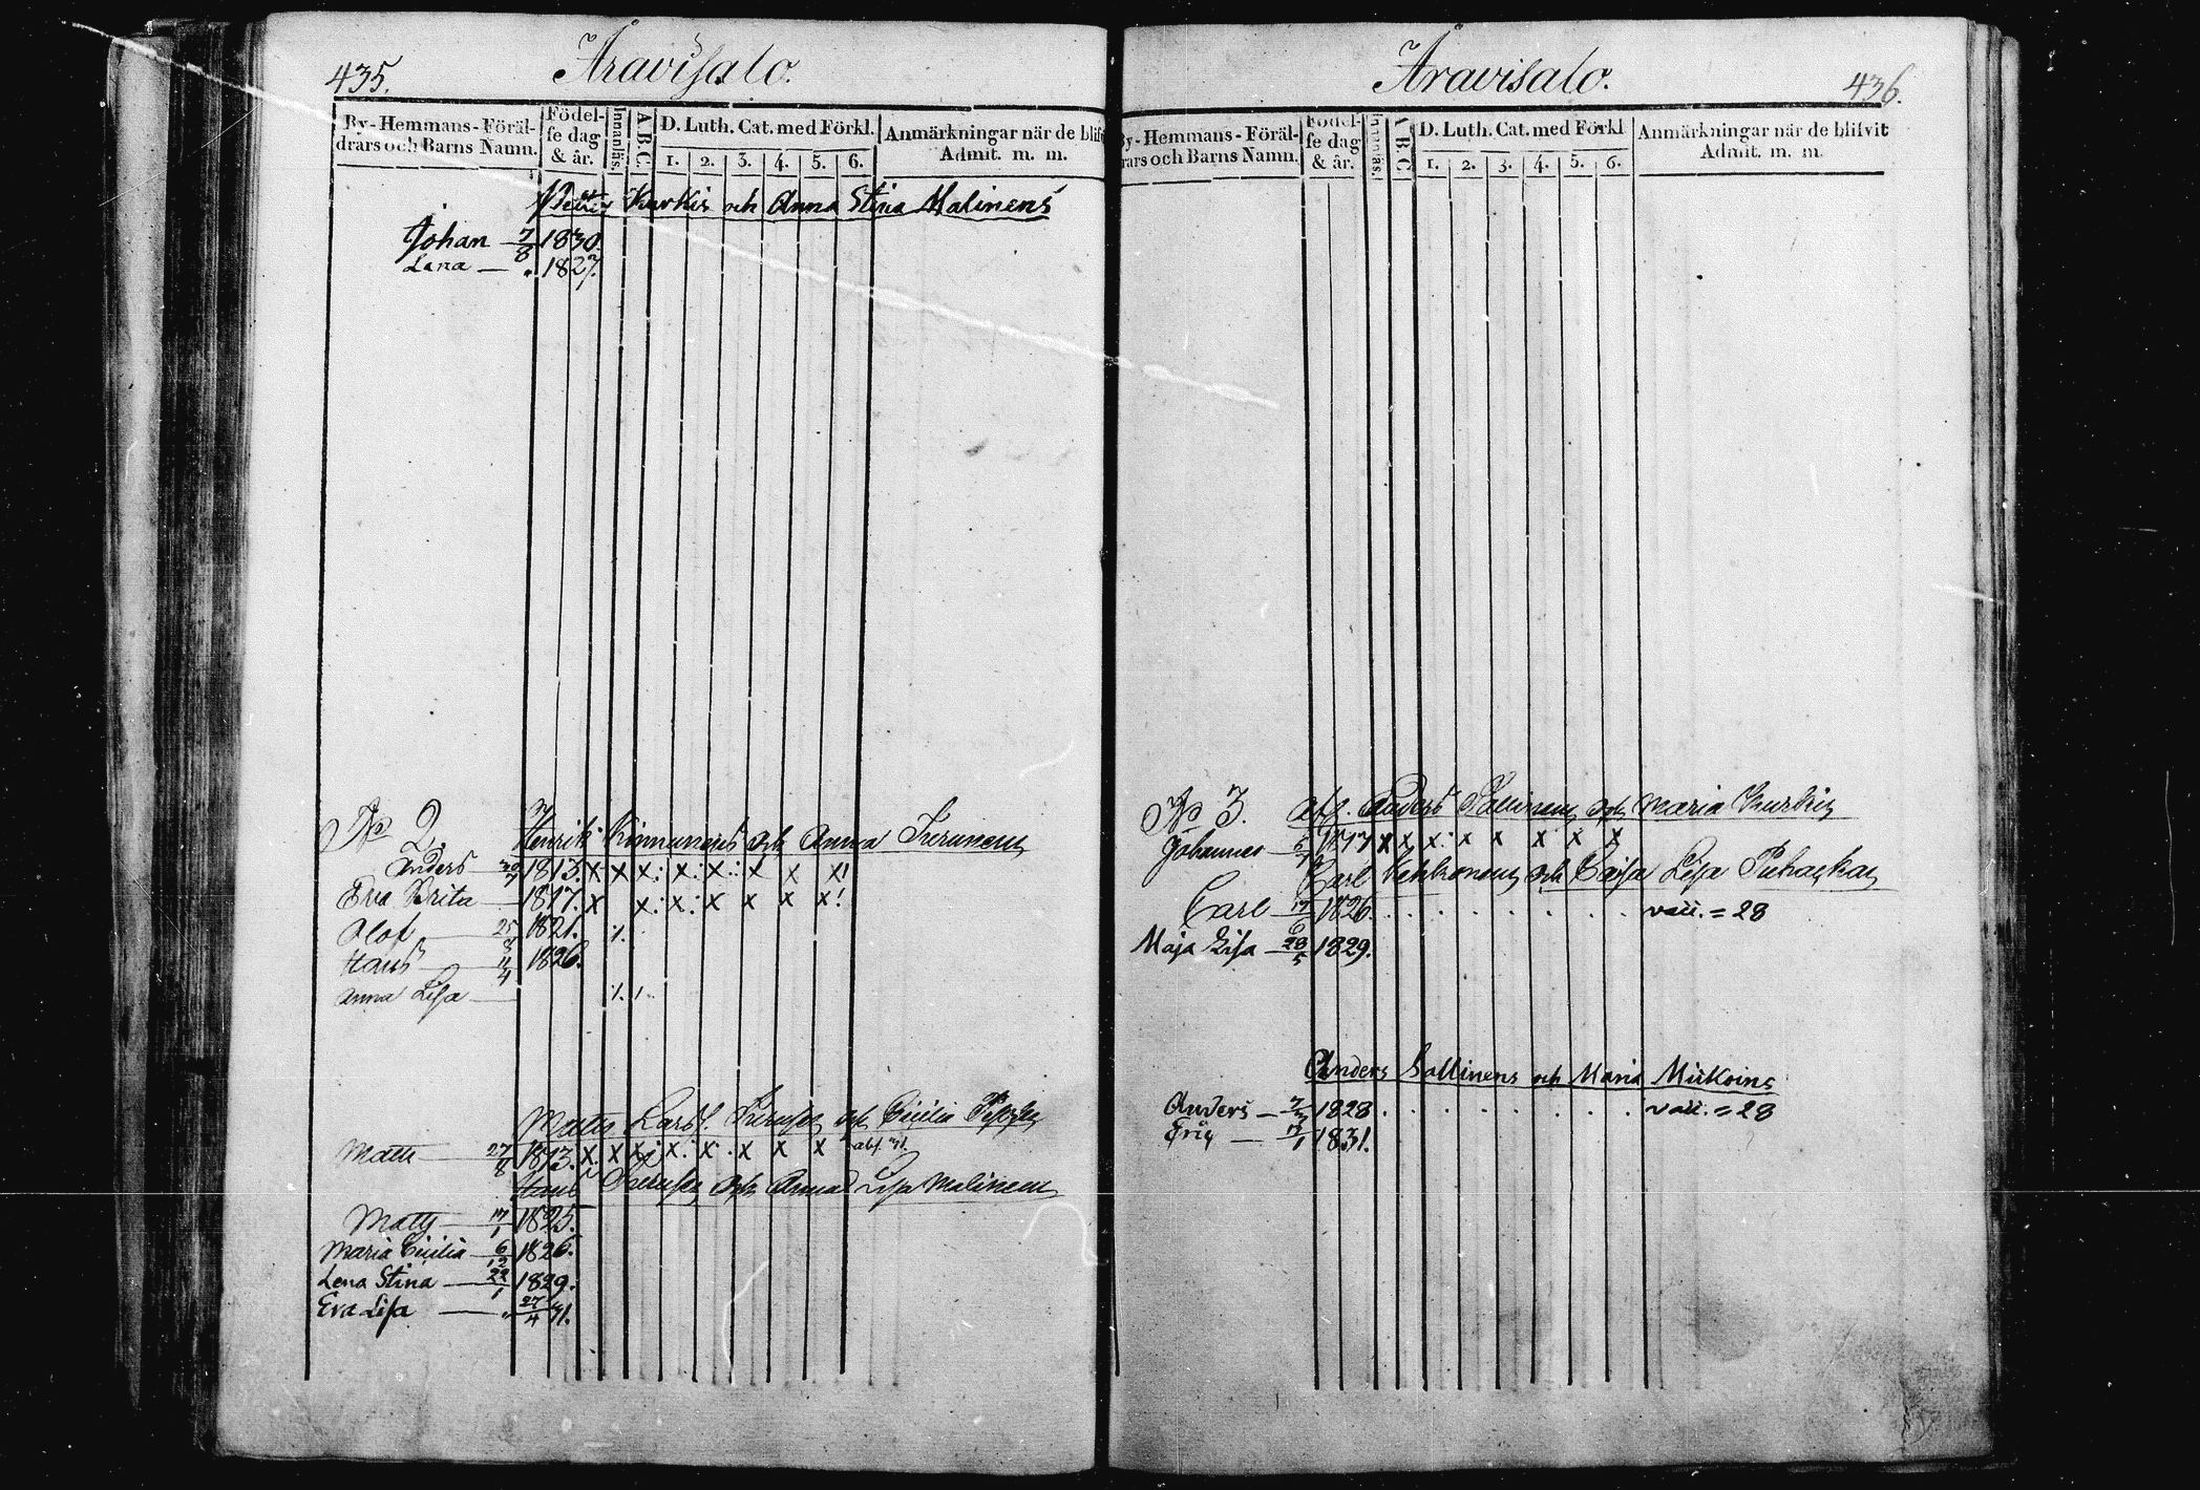 435.
Aravisalo.
By-Hemmans-Föräl-
drars och Barns Namn.
Födel-
se dag
& år.
Innanläs.
A.B.C.
D. Luth. Cat. med Förkl.
1. 2. 3. 4. 5. 6.
Anmärkningar när de blifv
Admit. m. m.
Petter Kurkis och Anna Stina Malinens
Johan 7/8 1830.
Lena — " 1827.
No 2. Henrik Kinnunens och Anna
Anders 1813. x x x: x: x: x x x!
Eva Brita — 1817. x x: x: x x x x!
Olof 25/8 1821. ٪
Hans 11/4 1826.
Anna Lisa —
Matts Lars och Cicilia
Matts 27/8 1813. x x x x: x: x x x abs. 31.
Hans och Anna Lisa Malinens
Matts 17/1 1825.
Maria Cicilia 6/12 1826.
Lena Stina 22/1 1829.
Eva Lisa — " 27/4 31.
Aravisalo.
436.
By-Hemmans-Föräl-
rars och Barns Namn.
Födel-
se dag
& år.
Innanläs.
A B C
D. Luth. Cat. med Förkl
1. 2. 3. 4. 5. 6.
Anmärkningar när de blifvit
Admit. m. m.
No 3. Afl. Anders Sallinens och Maria Kurkis
Johannes 6/7 1817 x x x: x x x x x
Carl och Caisa Lisa
Carl 17/6 1826. . . . . . . . . vacc. = 28
Maja Lisa — 28/5 1829.
Anders Sallinens och Maria Miikoins
Anders — 7/3 1828. . . . . . . . . vacc. = 28
Eric — 13/1 1831.